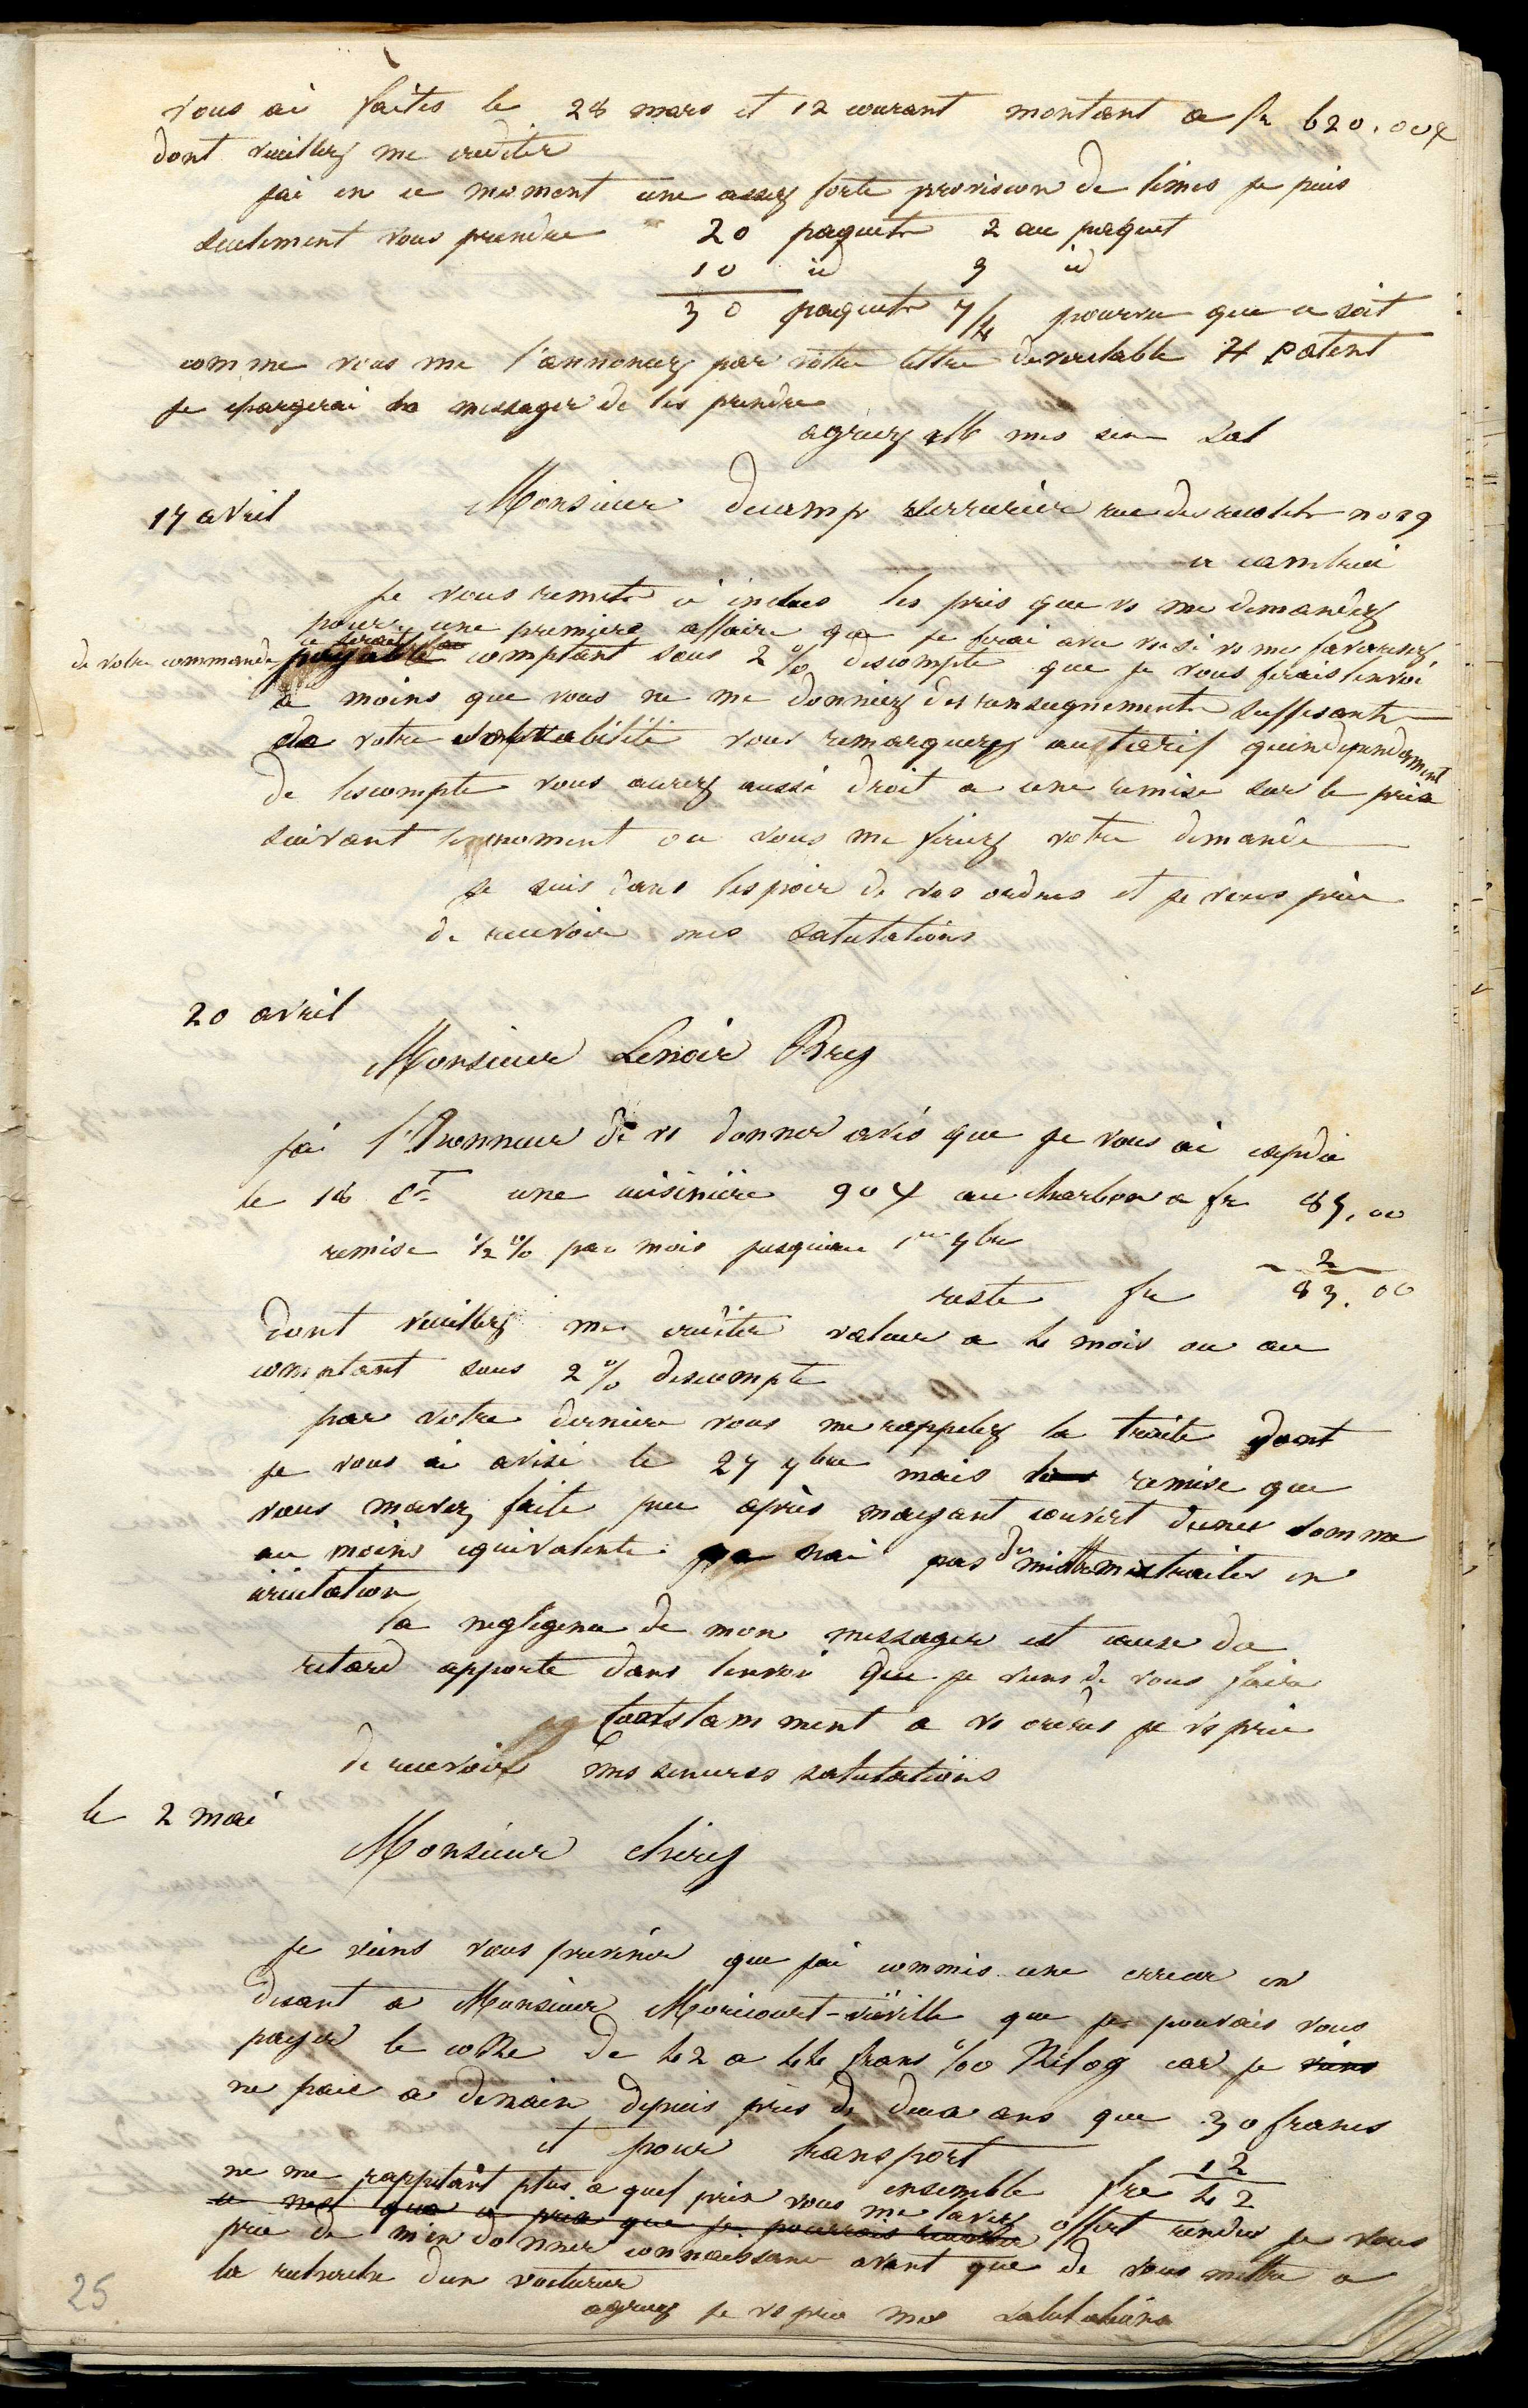 vous ai faites le 28 mars et 12 courant montant a fr 620.00
dont veuillez me crediter
jai en ce moment une assez forte provision de limes je puis
seulement vous prendre 20 paquets 2 au paquet
10 id 3 id
30 paquets pourvu que ce soit
comme vous me l'annoncez par votre lettre veritable H Patent
je chargerai le messager de les prendre
agreez mes sinc Sal
17 avril Monsieur decamp serrurier rue des no 29
a cambrai
je vous remets ci inclus les pris que vs me demandez
pour une premiere affaire que je ferai avec vs si vs me favorisez
de votre commande ce serait au comptant sous 2 % descompte que je vous ferais lenvoi
a moins que vous ne me donniez des renseignements suffisants
de votre solvabilité vous remarquerez au tarif quindependamment
de lescompte vous aurez aussi droit a une remise sur le prix
suivant le moment ou vous me feriez votre demande
je suis dans lespoir de vos ordres et je vous prie
de recevoir mes salutations
20 avril
Monsieur Lenoir Brez
jai l'honneur de vs donner avis que je vous ai expedié
le 18 Ct une cuisinière au charbon a fr 85.00
remise ½ % par mois jusquau 1er 7bre 2
reste fr 83.00
dont veuillez me crediter valeur a 4 mois ou au
comptant sous 2 % descompte
par votre derniere vous me rappelez la traite dont
je vous ai avisé le 27 7bre mais la remise que
vous mavez faite peu après mayant couvert dune somme
au moins equivalente je nai pas de mettre mes traites en
circulation
la negligence de mon messager est cause du
retard apporte dans lenvoi que je viens de vous faire
Constamment a vs ordres je vs prie
de recevoir mes sinceres salutations
le 2 mai
Monsieur chirez
je viens vous prevenir que jai commis une erreur en
disant a Monsieur Moricourt-viéville que je pouvais vous
payer le coke de 42 a 44 frans %0 Kilog car je viens
ne paie a denain depuis près de deux ans que 30 francs
et pour transport 12
ensemble frs 42
ne me rappelant plus a quel prix vous me lavez offert rendu je vous
ce nest que ce prix que je pourrais
prie de m'en donner connaissance avant que de vous mettre a
la recherche dun voiturier
agreez je vs prie mes salutations
25